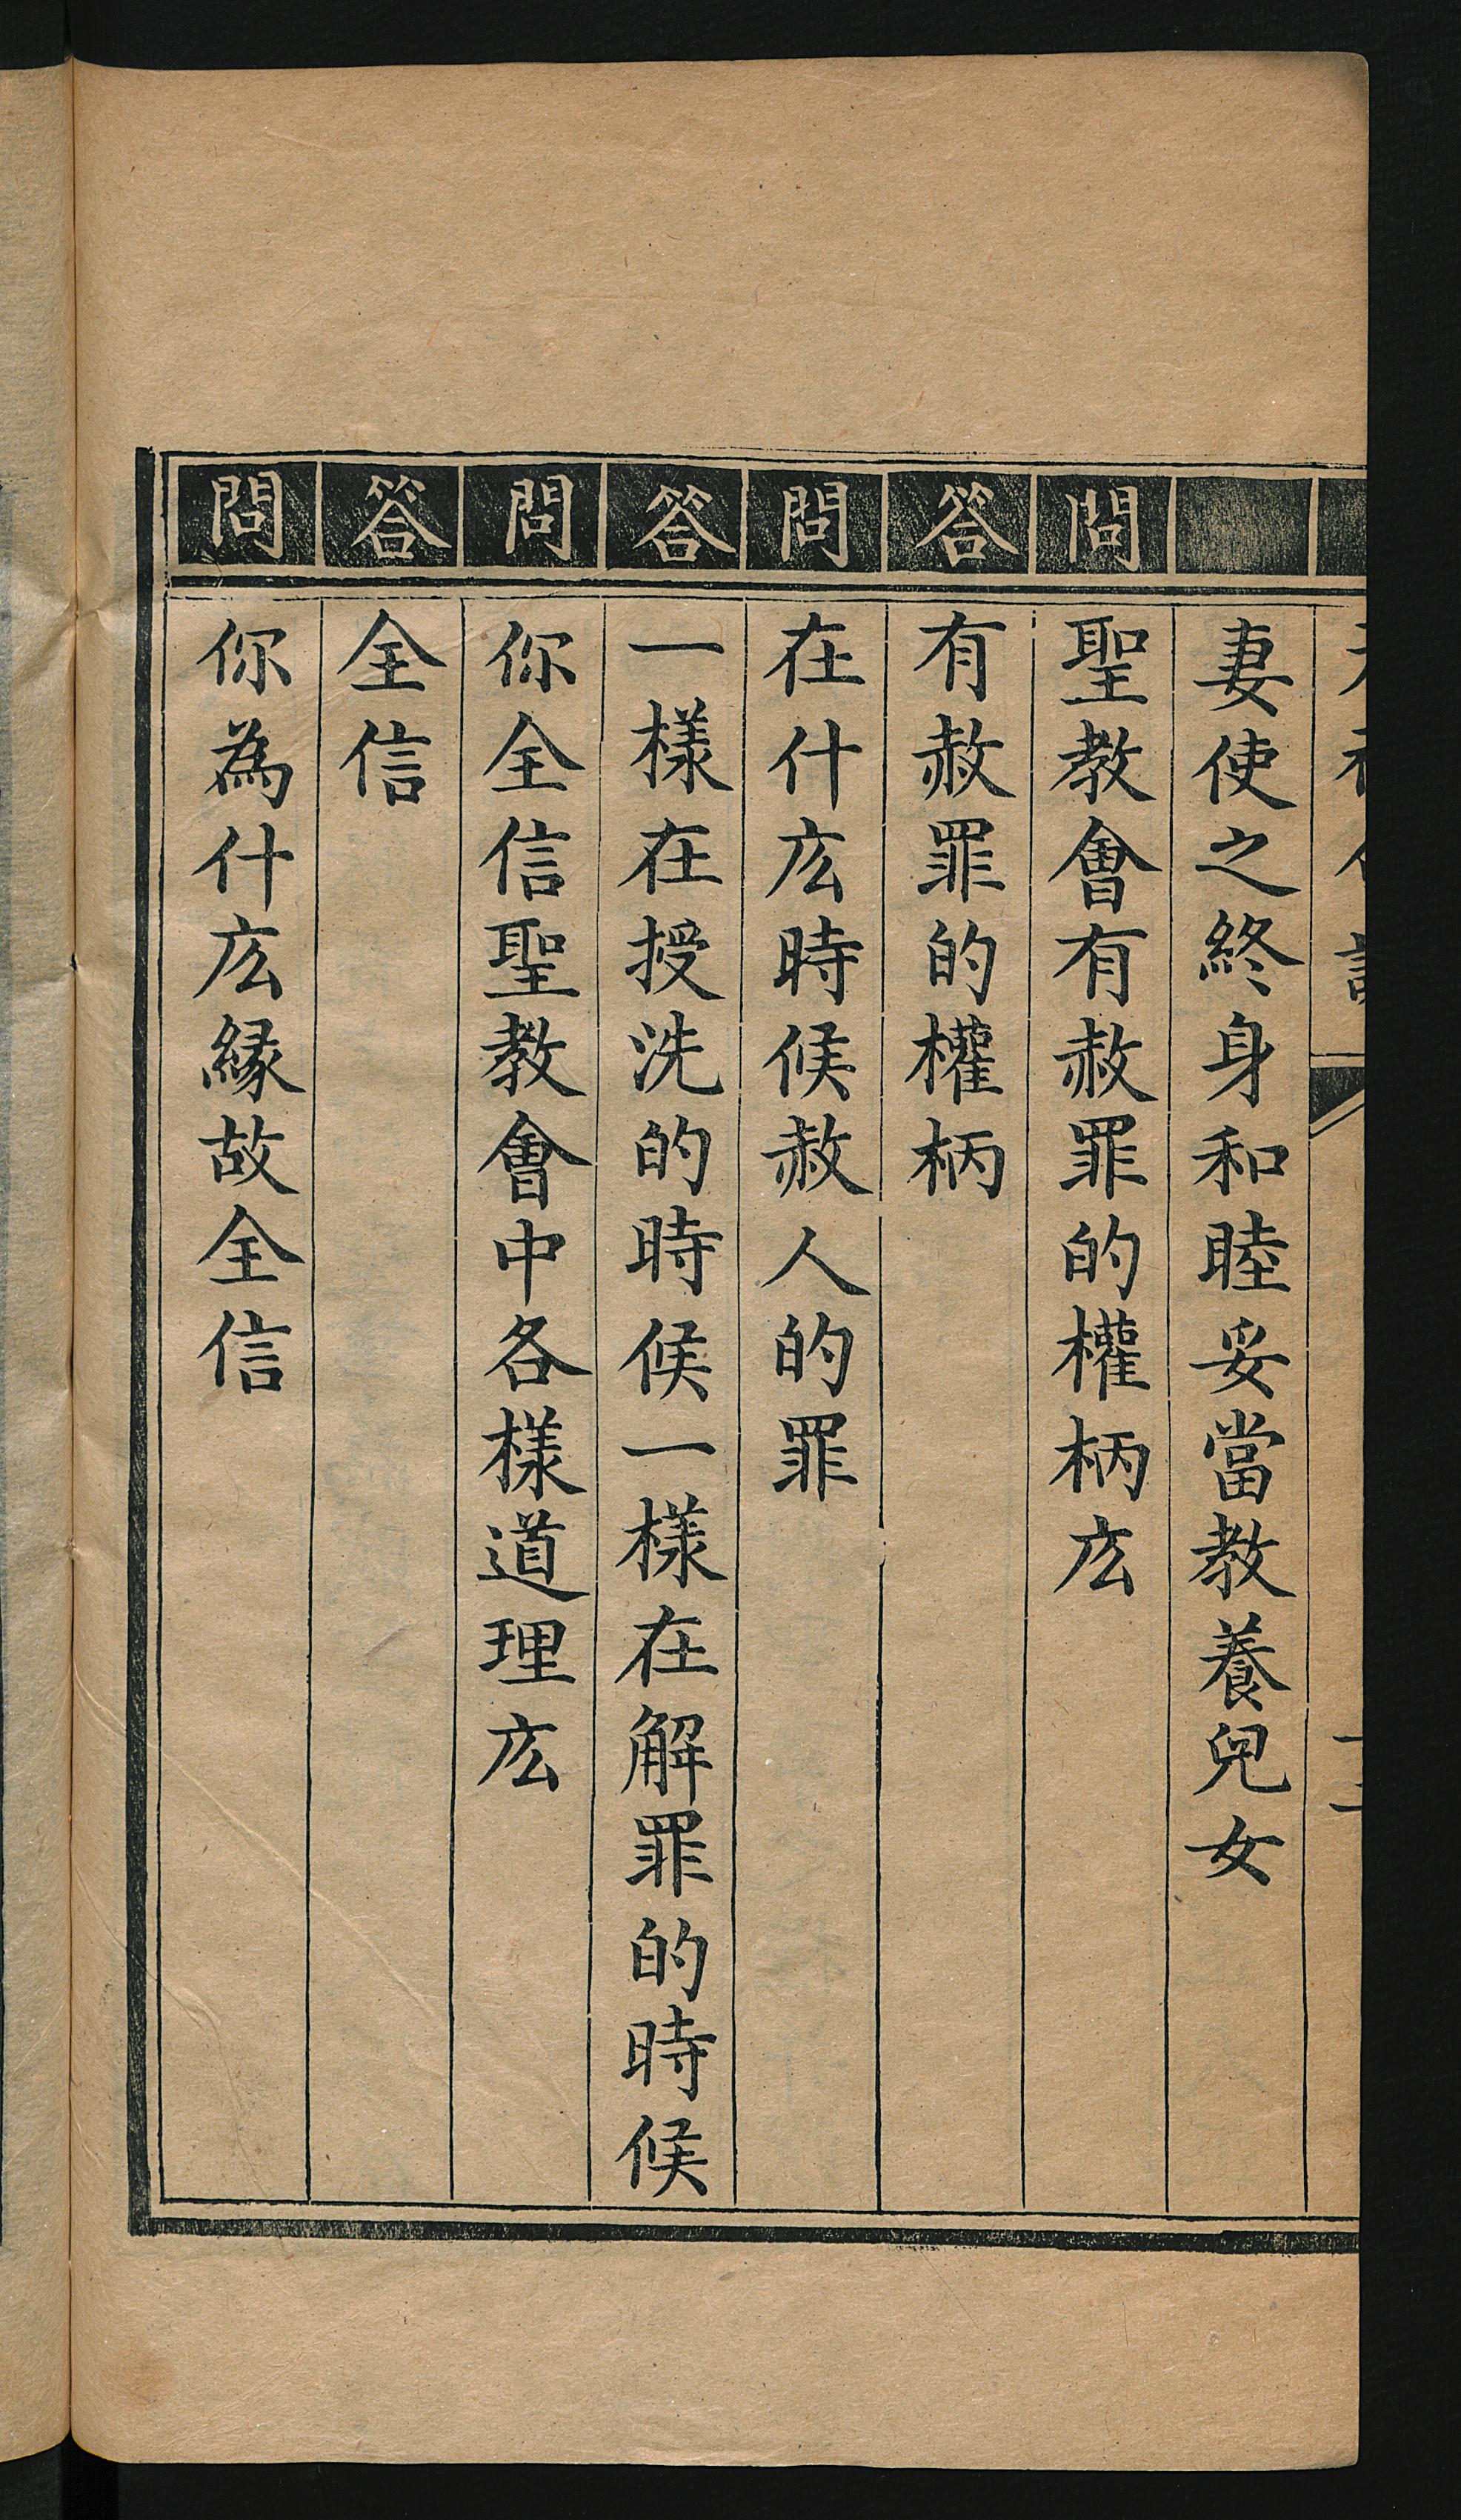 妻使之終身和睦妥當教養兒女
問 聖教會有赦罪的權柄庅
答 有赦罪的權柄
問 在什庅時候赦人的罪
答 一樣在授洗的時候一樣在解罪的時候
問 你全信聖教會中各樣道理庅
答 全信
問 你為什庅緣故全信